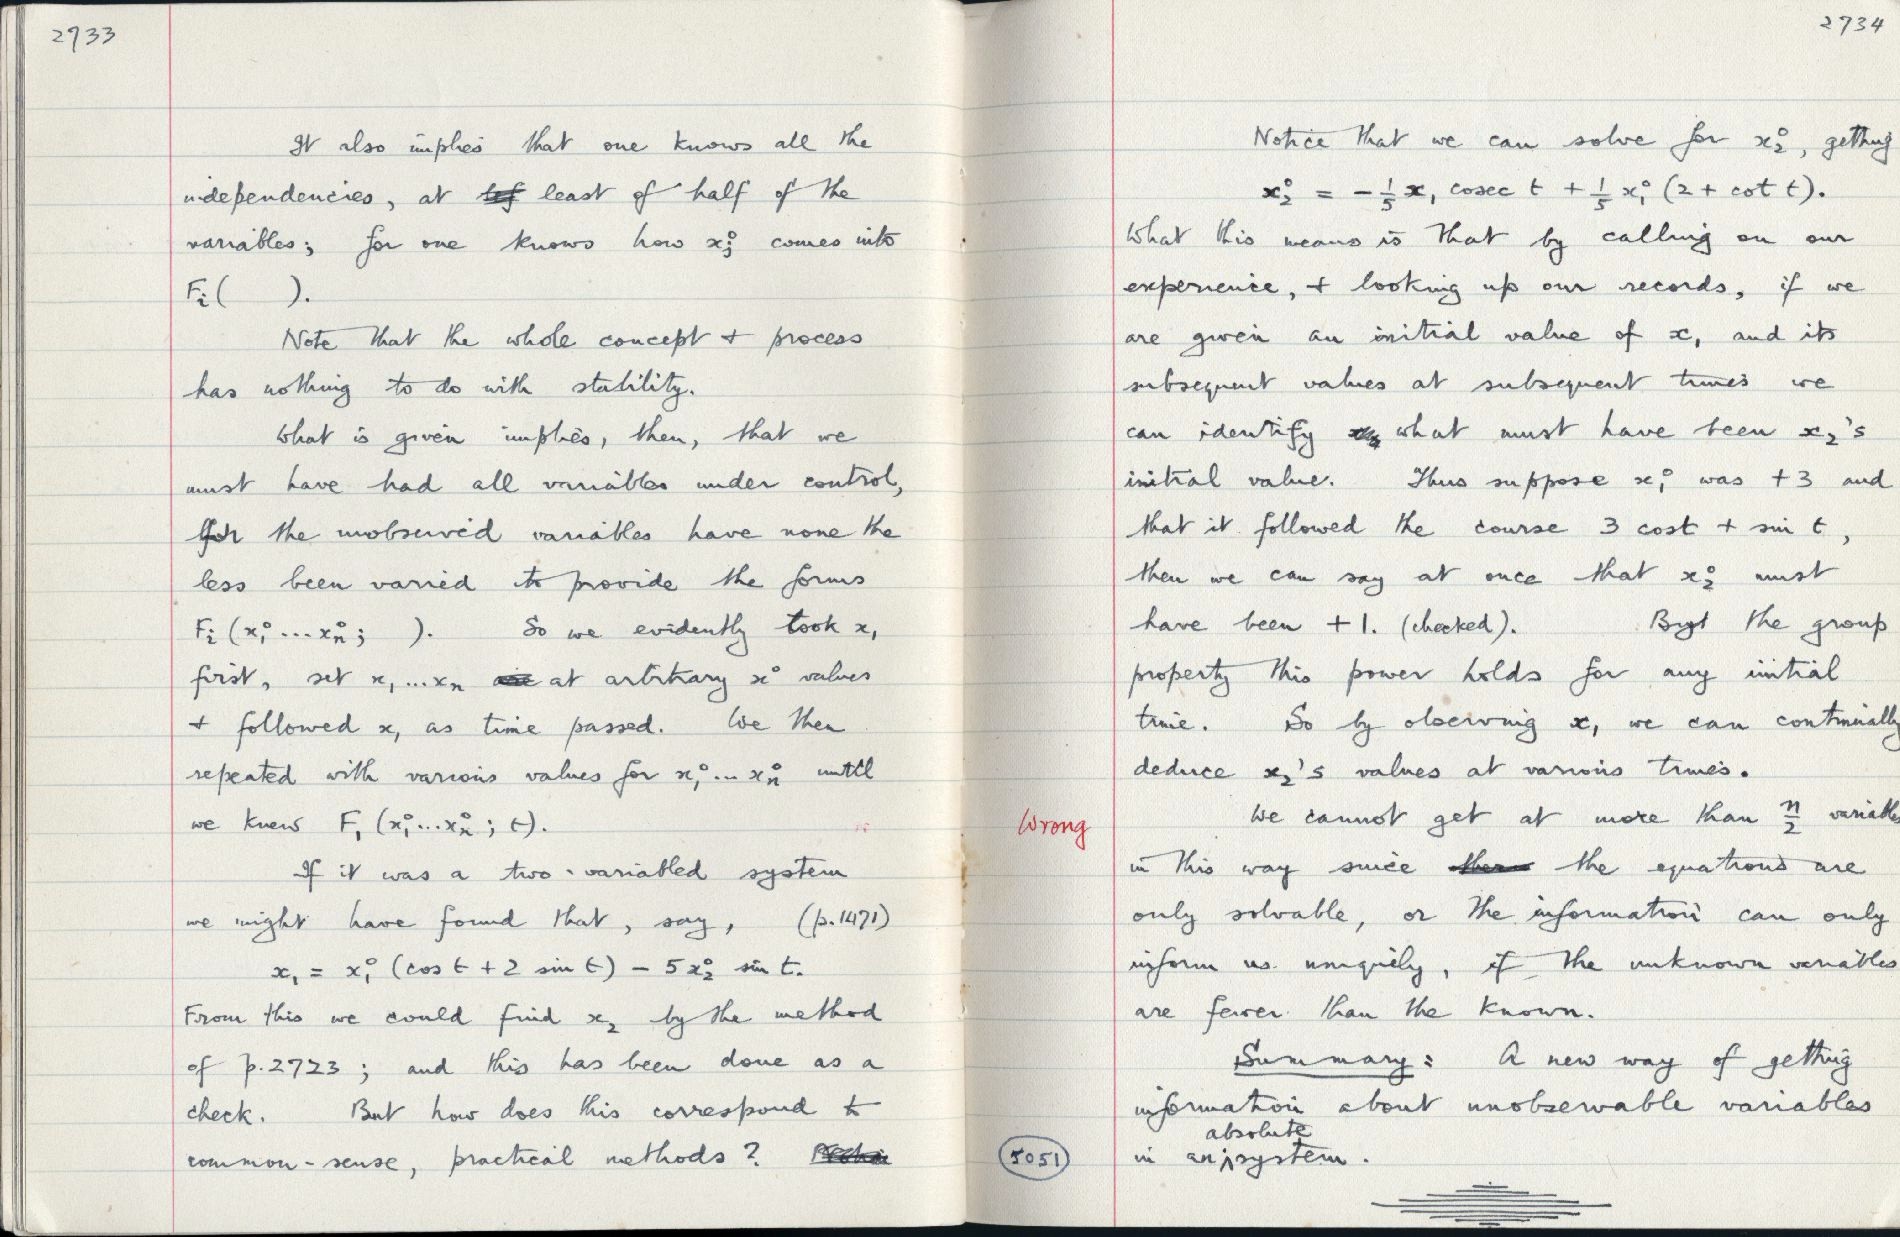 2733
It also implies that one knows all the
independencies, at least of half of the
variables; for one knows how xⱼ° comes into
Fᵢ(      ).
Note that the whole concept + process
has nothing to do with stability.
What is given implies, then, that we
must have had all variables under control,
for the unobserved variables have none the
less been varied to provide the forms
Fᵢ (x₁° ... xₙ° ;    ).    So we evidently took x₁
first, set x₁ ... xₙ at arbitrary x° values
+ followed x₁ as time passed.    We then
repeated with various values for x₁° ... xₙ° until
we knew F₁ (x₁° ... xₙ° ; t).
If it was a two-variabled system
we might have found that, say,    (p.1471)
x₁ = x₁° (cos t + 2 sin t) – 5 x₂° sin t.
From this we could find x₂ by the method
of p.2723 ; and this has been done as a
check.    But how does this correspond to
common-sense, practical methods?
2734
Notice that we can solve for x₂°, getting
x₂° = – 1/5 x₁ cosec t + 1/5 x₁° (2 + cot t).
What this means is that by calling on our
experience, + looking up our records, if we
are given an initial value of x₁ and its
subsequent values at subsequent times we
can identify what must have been x₂'s
initial value.    Thus suppose x₁° was +3 and
that it followed the course 3 cos t + sin t,
then we can say at once that x₂° must
have been +1. (checked).    By the group
property this power holds for any initial
time.    So by observing x₁ we can continually
deduce x₂'s values at various times.
Wrong
We cannot get at more than n/2 variables
in this way since the equations are
only solvable, or the information can only
inform us uniquely, if the unknown variables
are fewer than the known.
Summary: A new way of getting
information about unobservable variables
5051
in an absolute system.